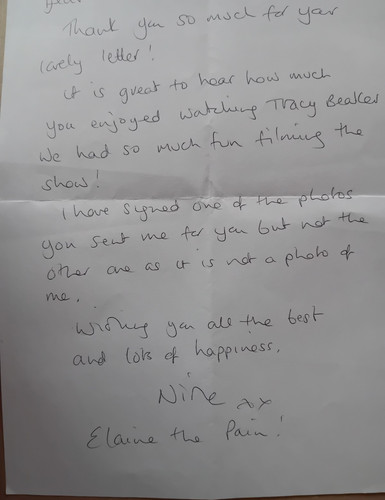 Thank you so much for your
lovely letter!
It is great to hear how much
you enjoyed watching Tracy Beaker
We had so much fun filming the
show!
I have signed one of the photos
you sent me for you but not the
other one as it is not a photo of
me.
Wishing you all the best
and lots of happiness.
xx
Elaine the Pain!